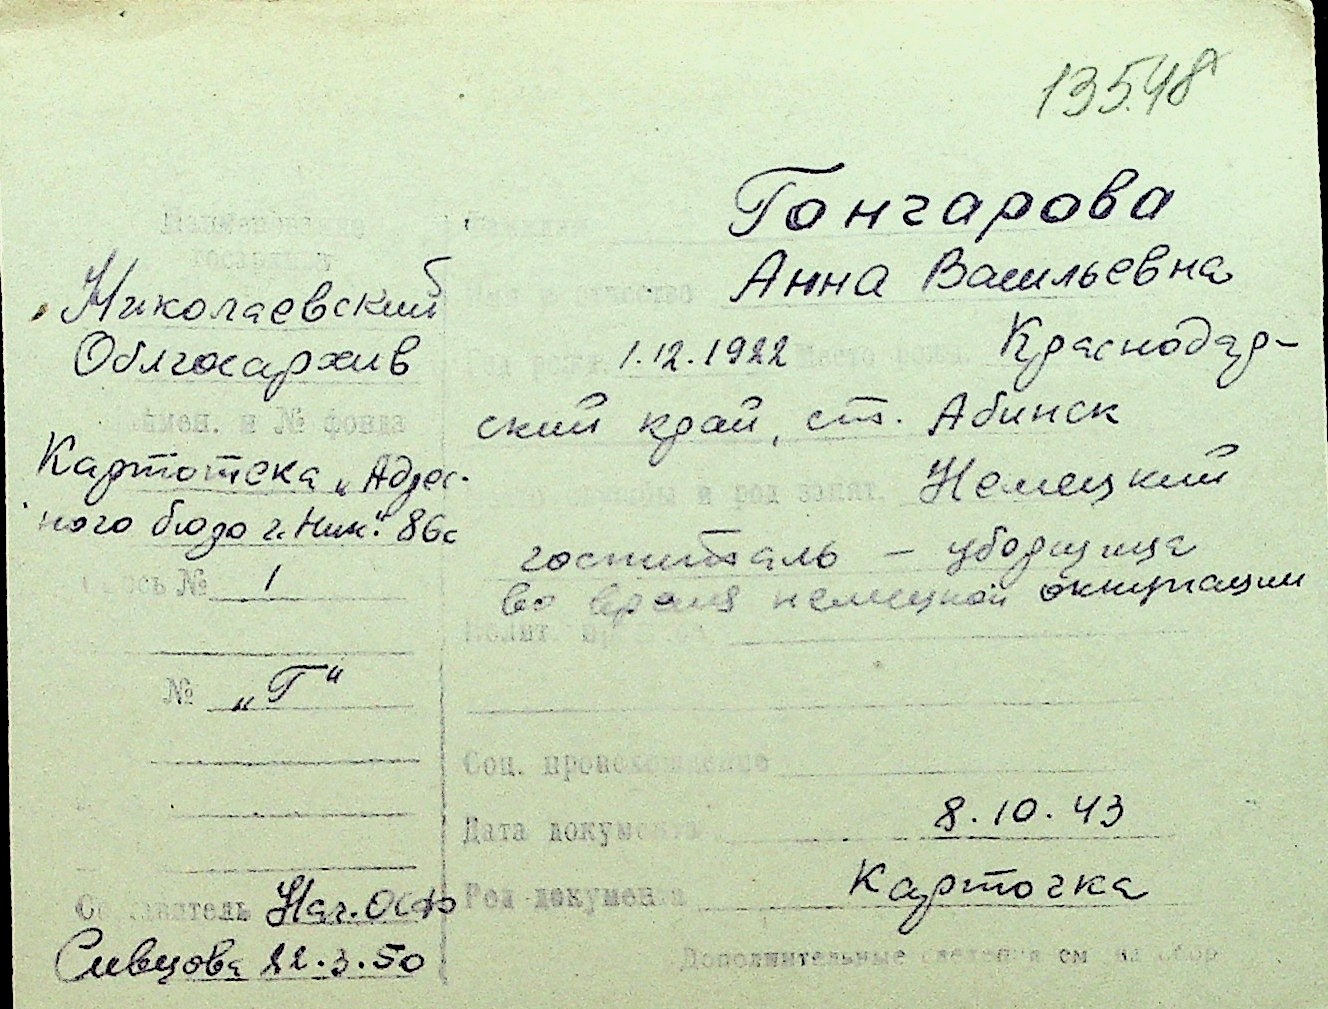 13548
Наименование
госархива
Николаевский
Облгосархив
Наимен. и № фонда
Картотека „Адрес-
ного бюро г. Ник." 86с
Опись № 1
№ „Г"
Составитель Нач. ОСФ
Сивцова 22.3.50
Фамилия Гончарова
Имя и отчество Анна Васильевна
Год рожд. 1.12.1922 Место рожд. Краснодар-
ский край, ст. Абинск
Место службы и род занят. Немецкий
госпиталь – уборщица
во время немецкой оккупации
Соц. происхождение
Дата документа 8.10.43
Род документа Карточка
Дополнительные сведения см. на обор